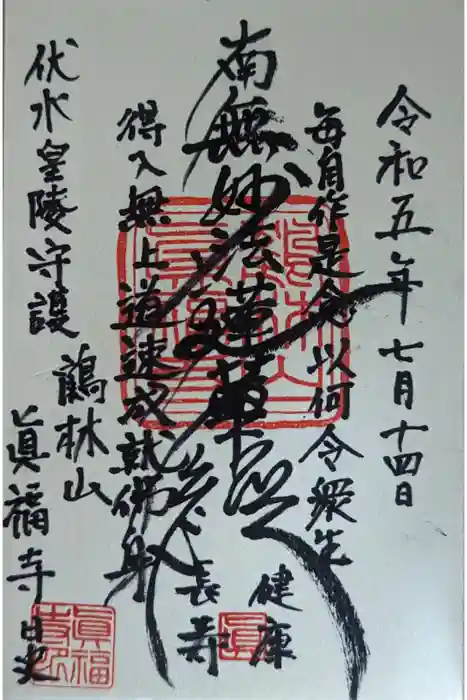 令和五年七月十四日
毎自作是念以何令衆生
健康
南無妙法蓮華経
長寿
得入無上道速成就佛身
伏水皇陵守護
鶴林山
眞福寺日光
眞福